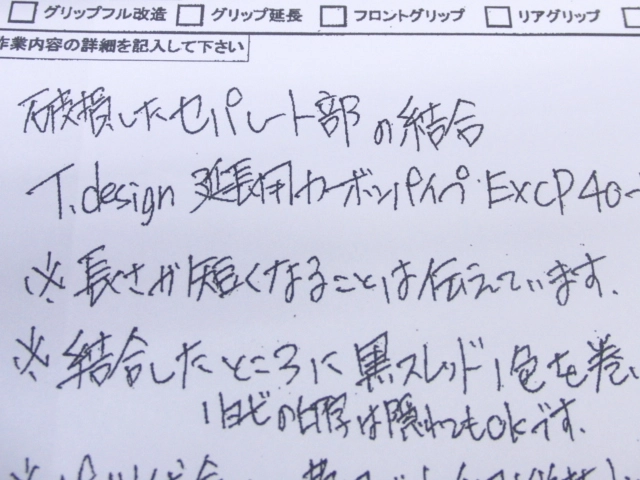 グリップフル改造 グリップ延長 フロントグリップ リアグリップ
作業内容の詳細を記入して下さい
破損したセパレート部の結合
T.design 延長用カーボンパイプ EXCP40-
※長さが短くなることは伝えています.
※結合したところに黒スレッド1色を巻い
ロゴの白字は隠れてもOKです.